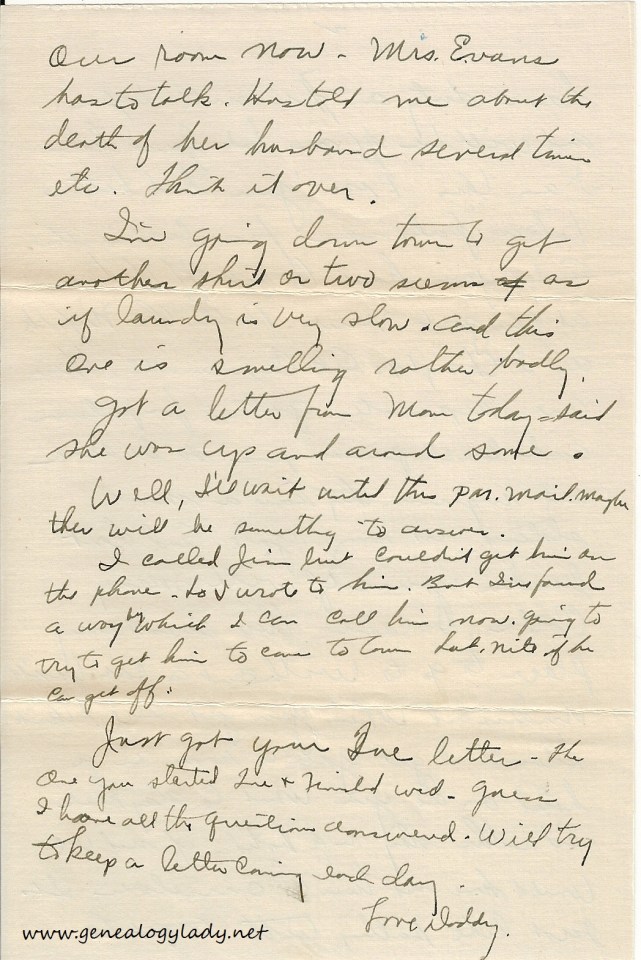 Our room now - Mrs. Evans
has to talk. Has told me about the
death of her husband several times
etc. Think it over.
I'm going down town to get
another shirt or two seems as
if laundry is very slow. and this
one is smelling rather badly.
Got a letter from Mom today - said
she was up and around some.
Well, I'll wait until this pm. mail. maybe
ther will be somethg to answer.
I called Jim but couldn't get him on
the phone - So I wrote to him. But I've found
a way by which I can call him now. going to
try to get him to come to town Sat. nite if he
can get off.
Just got your Tue letter - the
one you started Tue & finished wed - Guess
I have all the questions answered. Will try
to keep a letter coming each day.
Love Daddy.
www.genealogylady.net